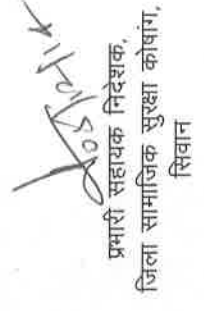 प्रभारी सहायक निदेशक,
जिला सामाजिक सुरक्षा कोषांग,
सिवान